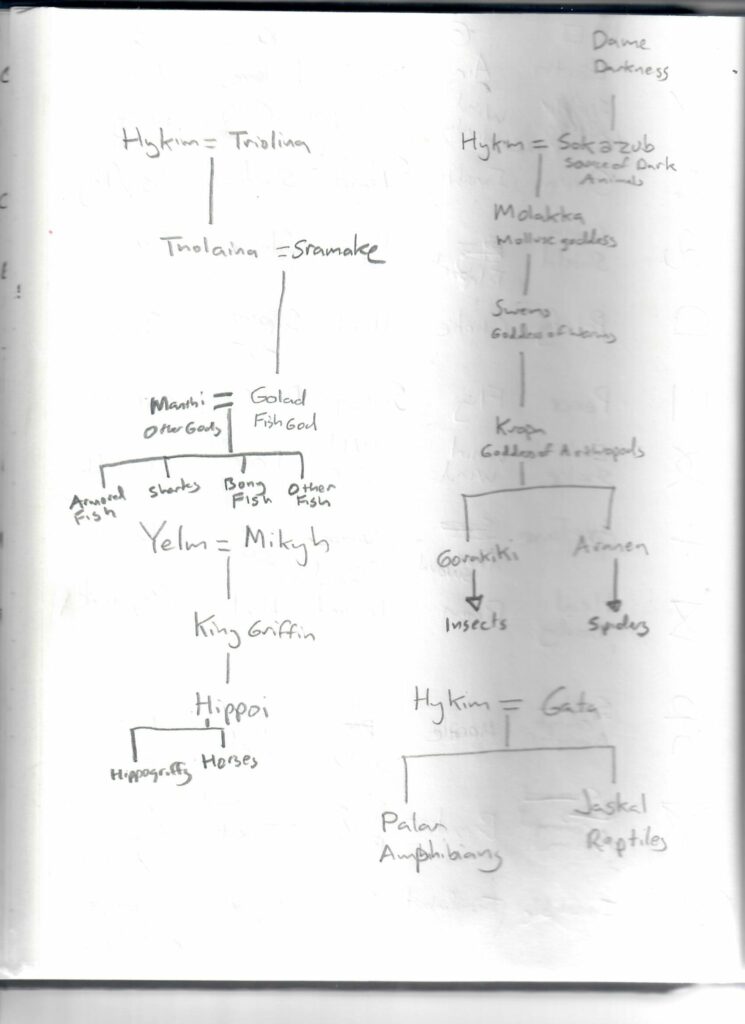 Dame
Darkness
Hykim = Triolina
Hykim = Sokazub
Source of Dark
Animals
Molakka
Mollusc goddess
Tholaina = Sramake
Swems
Goddess of Worms
Manthi = Golad
Other Gods
Fish God
Kropn
Goddess of Arthropods
Armored
Fish
Sharks
Bony
Fish
Other
Fish
Yelm = Mikyh
Gorakiki
Aranea
King Griffin
Insects
Spiders
Hippoi
Hykim = Gata
Hippogriffs
Horses
Palan
Amphibians
Jaskal
Reptiles